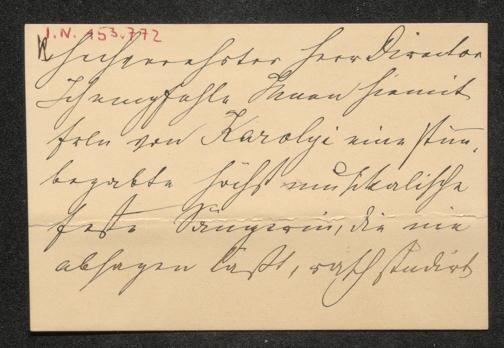 I.N. 153.772
Hochverehrter Herr Director
Ich empfehle Ihnen hiemit
Frln von Karolyi eine stim̅-
begabte höchst musikalische
feste Sängerin, die nie
absagen läßt, rasch studirt